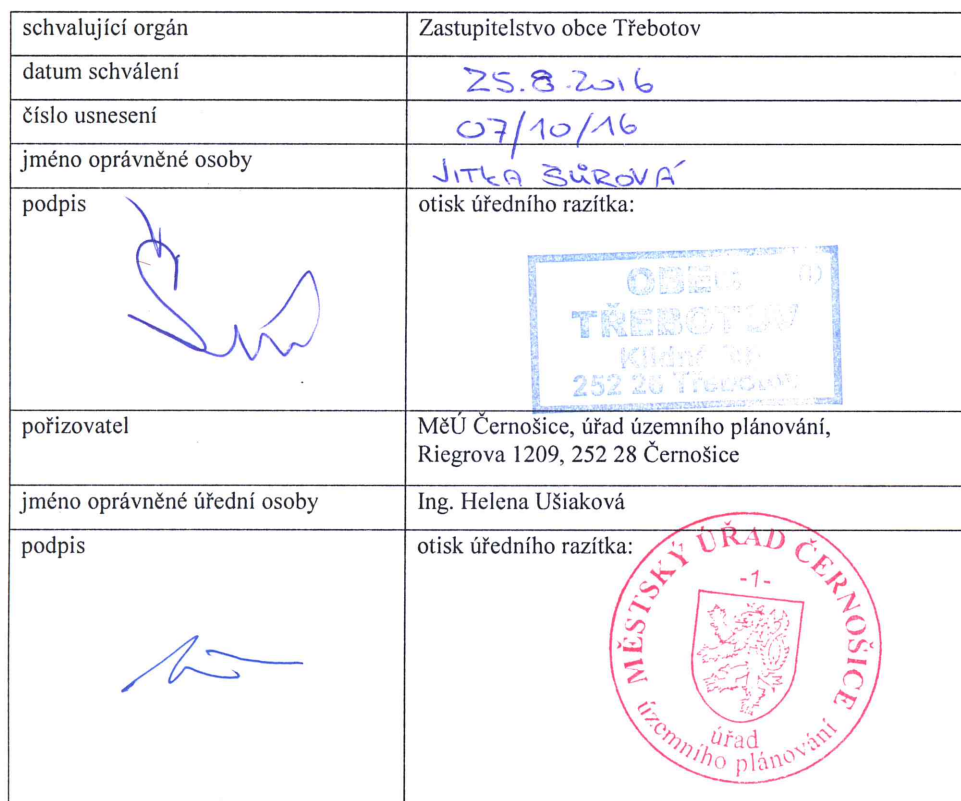 schvalující orgán Zastupitelstvo obce Třebotov
datum schválení 25.8.2016
číslo usnesení 07/10/16
jméno oprávněné osoby JITKA ŠŮROVÁ
podpis otisk úředního razítka:
OBEC (1)
TŘEBOTOV
252 26 Třebotov
pořizovatel MěÚ Černošice, úřad územního plánování,
Riegrova 1209, 252 28 Černošice
jméno oprávněné úřední osoby Ing. Helena Ušiaková
podpis otisk úředního razítka:
MĚSTSKÝ ÚŘAD ČERNOŠICE
-1-
úřad
územního plánování